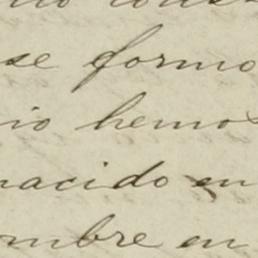 se formo
io hemos
nacido en
mbre en